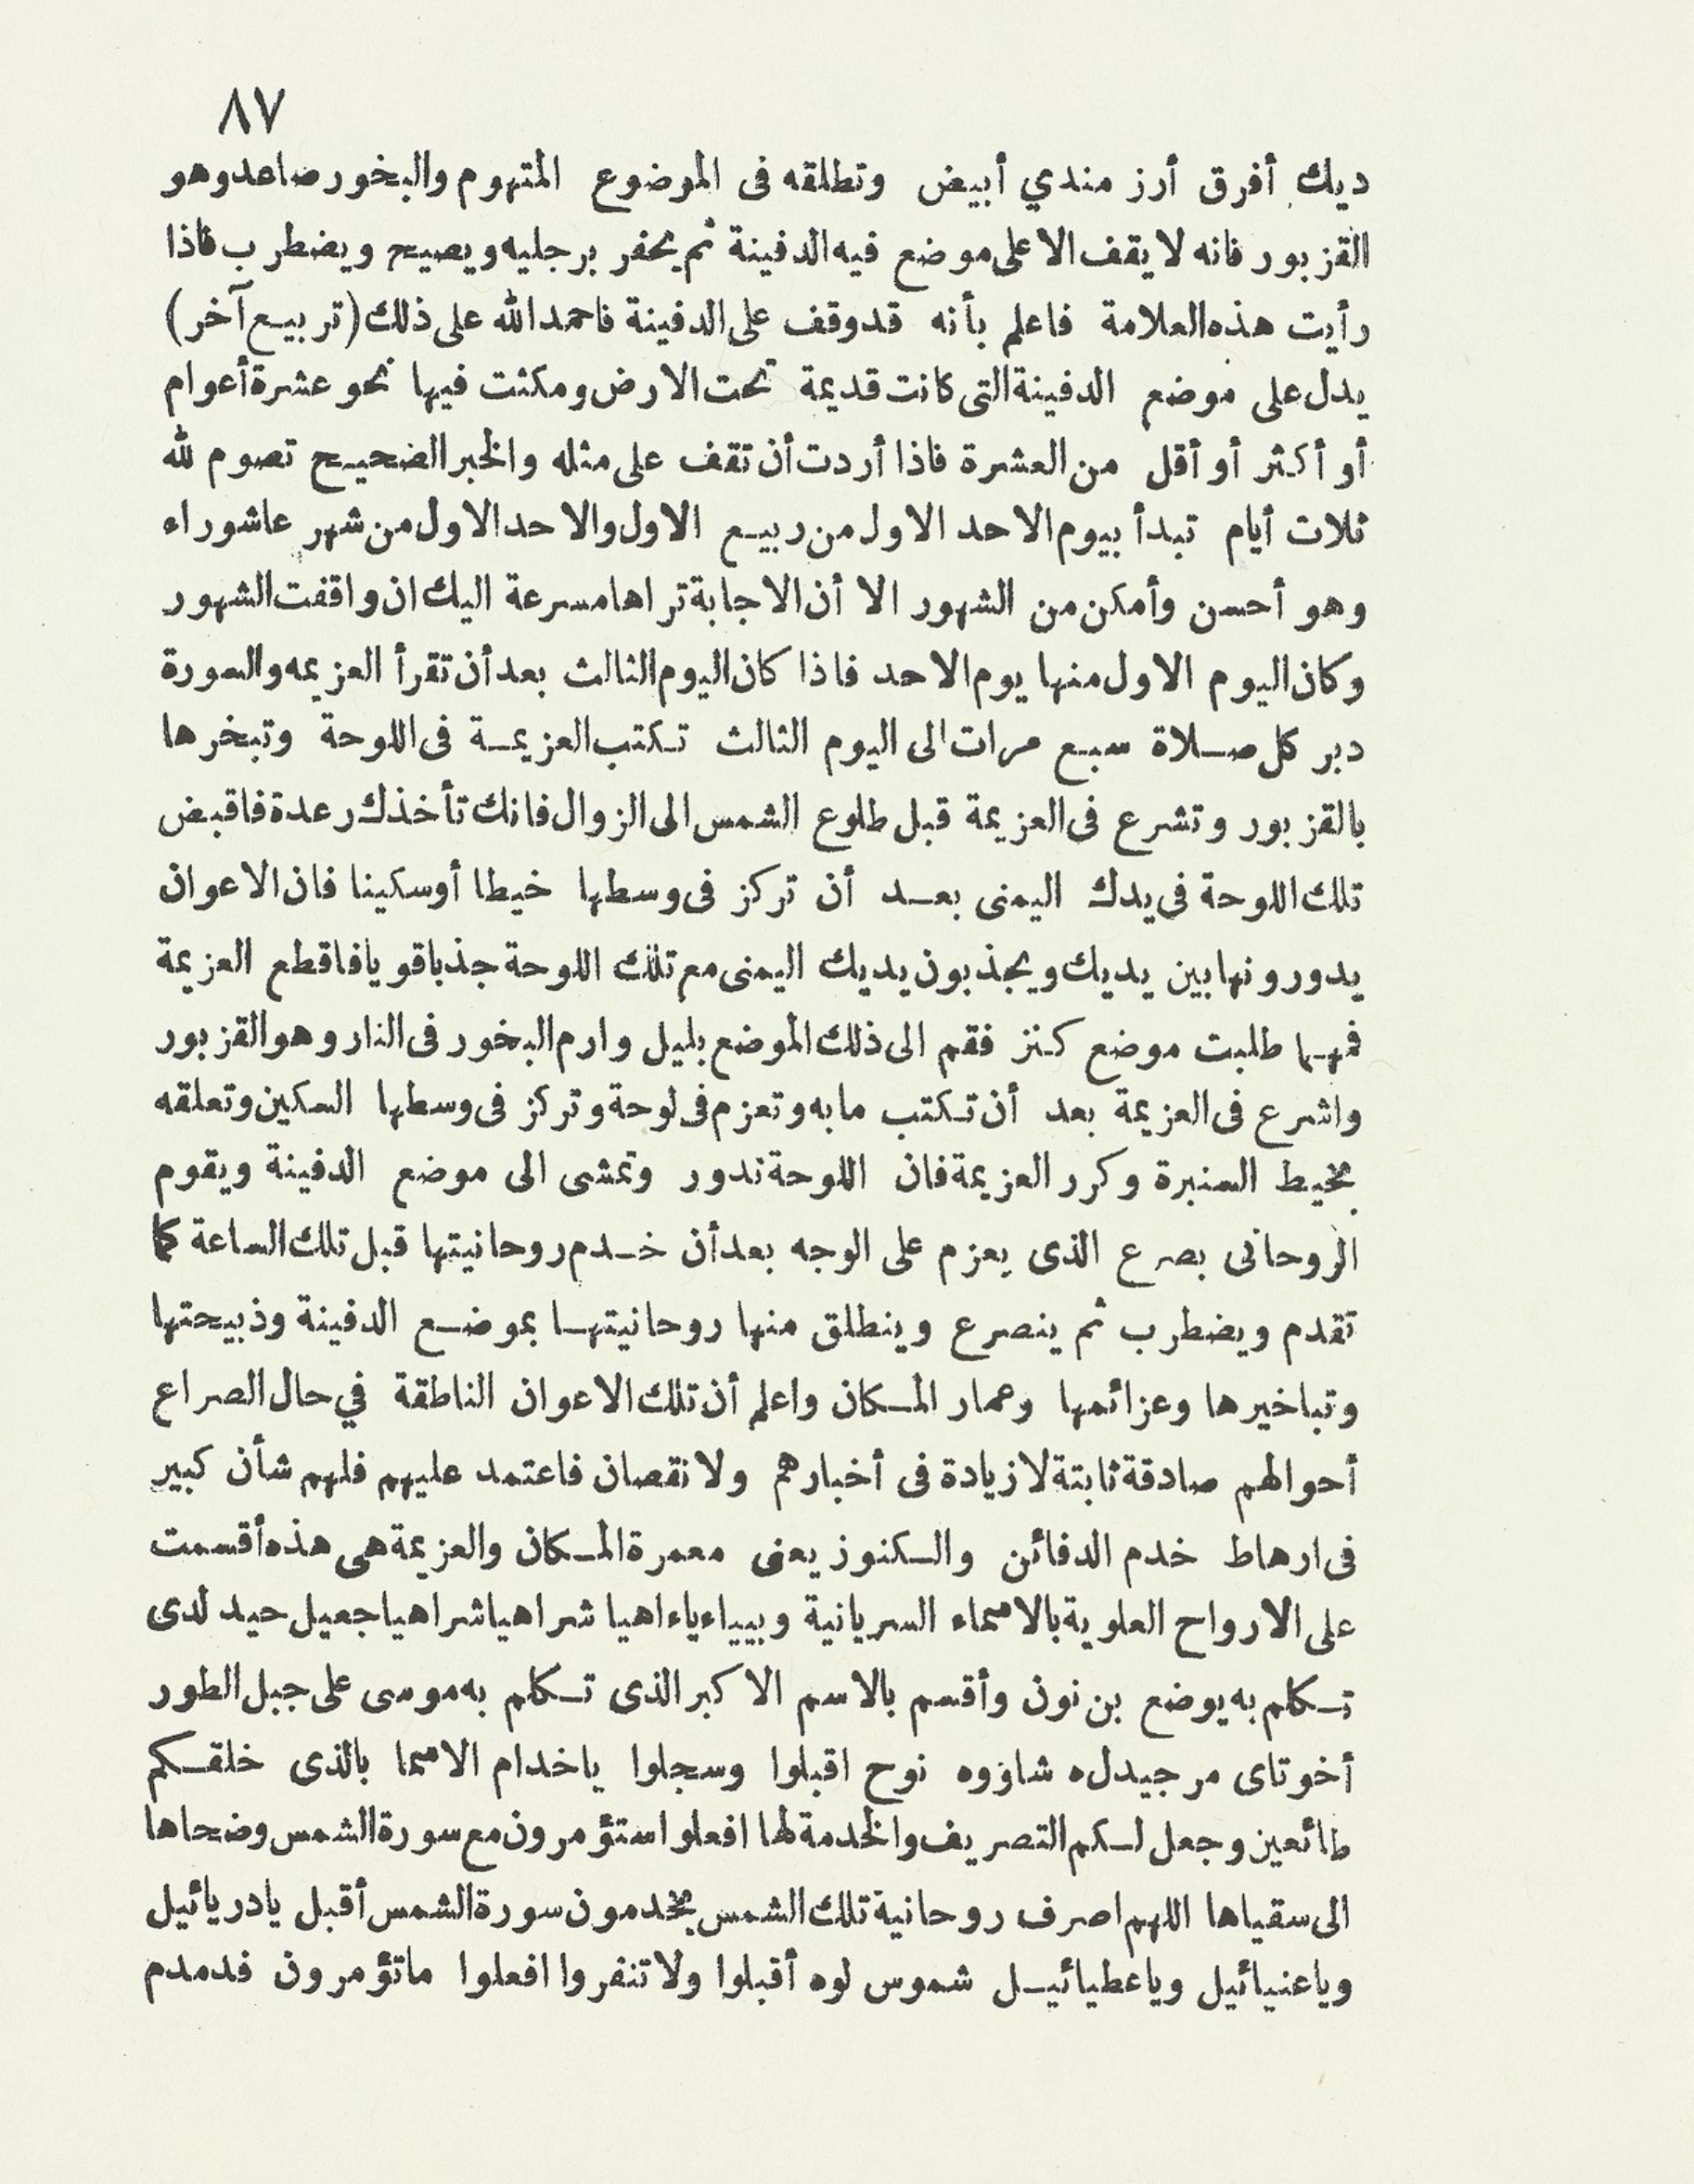 ٨٧
ديك أفرق أرز مندي أبيض وتطلقه فى الموضوع المتهوم والبخور صاعد وهو
القزبور فانه لا يقف الا على موضع فيه الدفينة ثم يحفر برجليه ويصيح ويضطرب فاذا
رأيت هذه العلامة فاعلم بأنه قد وقف على الدفينة فاحمد الله على ذلك (تربيع آخر)
يدل على موضع الدفينة التى كانت قديمة تحت الارض ومكثت فيها نحو عشرة أعوام
أو أكثر أو أقل من العشرة فاذا أردت أن تقف على مثله والخبر الضحيح تصوم لله
ثلاث أيام تبدأ بيوم الاحد الاول من ربيع الاول والاحد الاول من شهر عاشوراء
وهو أحسن وأمكن من الشهور الا أن الاجابة تراها مسرعة اليك ان واقفت الشهور
وكان اليوم الاول منها يوم الاحد فاذا كان اليوم الثالث بعد أن تقرأ العزيمه والسورة
دبر كل صلاة سبع مرات الى اليوم الثالث تكتب العزيمة فى اللوحة وتبخرها
بالقزبور وتشرع فى العزيمة قبل طلوع الشمس الى الزوال فانك تأخذك رعدة فاقبض
تلك اللوحة فى يدك اليمنى بعد أن تركز فى وسطها خيطا أو سكينا فان الاعوان
يدورونها بين يديك ويجذبون يديك اليمنى مع تلك اللوحة جذبا قويا فاقطع العزيمة
فمهما طلبت موضع كنز فقم الى ذلك الموضع بليل وارم البخور فى النار وهو القزبور
واشرع فى العزيمة بعد أن تكتب ما به وتعزم فى لوحة وتركز فى وسطها السكين وتعلقه
بخيط السنبرة وكرر العزيمة فان اللوحة تدور وتمشى الى موضع الدفينة ويقوم
الروحانى بصرع الذى يعزم على الوجه بعد أن خدم روحانيتها قبل تلك الساعة كما
تقدم ويضطرب ثم ينصرع وينطلق منها روحانيتها بموضع الدفينة وذبيحتها
وتباخيرها وعزائمها وعمار المكان واعلم أن تلك الاعوان الناطقة في حال الصراع
أحوالهم صادقة ثابتة لا زيادة فى أخبارهم ولا نقصان فاعتمد عليهم فلهم شأن كبير
فى ارهاط خدم الدفائن والكنوز يعنى معمرة المكان والعزيمة هى هذه أقسمت
على الارواح العلوية بالاسماء السريانية وبيياء ياء اهيا شراهيا شراهيا جعيل حيد لدى
تكلم به يوضع بن نون وأقسم بالاسم الاكبر الذى تكلم به موسى على جبل الطور
أخوتاى مرجيدل ه شاؤوه نوح اقبلوا وسجلوا ياخدام الاسما بالذى خلقكم
طائعين وجعل لكم التصريف والخدمة لها افعلوا ستؤمرون مع سورة الشمس وضحاها
الى سقياها اللهم اصرف روحانية تلك الشمس يخدمون سورة الشمس أقبل يا دريائيل
وياعنيائيل وياعطيائيل شموس لوه أقبلوا ولا تنفروا افعلوا ما تؤمرون فدمدم